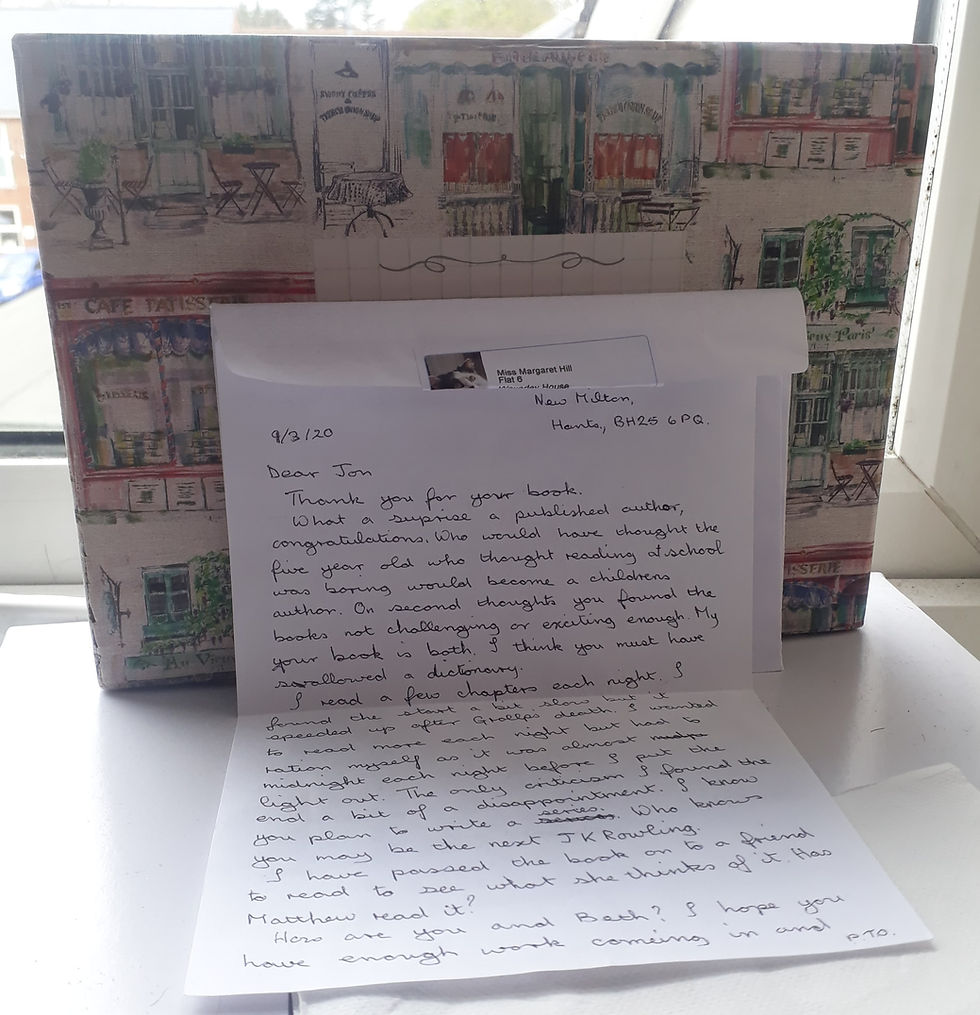 CAFE PATISSERIE
Miss Margaret Hill
Flat 6
House
New Milton,
Hants, BH25 6PQ.
9/3/20
Dear Jon
Thank you for your book.
What a suprise a published author,
congratulations. Who would have thought the
five year old who thought reading at school
was boring would become a childrens
author. On second thoughts you found the
books not challenging or exciting enough. My
your book is both. I think you must have
swallowed a dictionary.
I read a few chapters each night. I
found the start a bit slow but it
speeded up after Grollp's death. I wanted
to read more each night but had to
ration myself as it was almost
midnight each night before I put the
light out. The only criticism I found the
end a bit of a disappointment. I know
you plan to write a series. Who knows
you may be the next JK Rowling.
I have passed the book on to a friend
to read to see what she thinks of it. Has
Matthew read it?
How are you and Beth? I hope you
have enough work comeing in and
P.T.O.